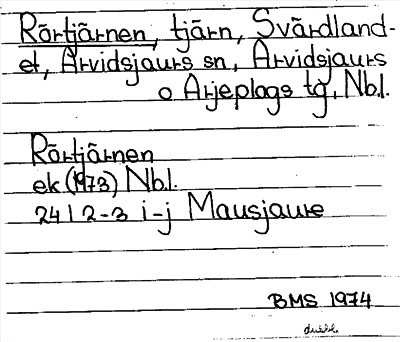 Rörtjärnen, tjärn, Svärdland-
et, Arvidsjaurs sn, Arvidsjaurs
o Arjeplogs tg, Nb.l.
Rörtjärnen
ek (1973) Nb.l.
24 I 2-3 i-j Mausjaure
BMS 1974